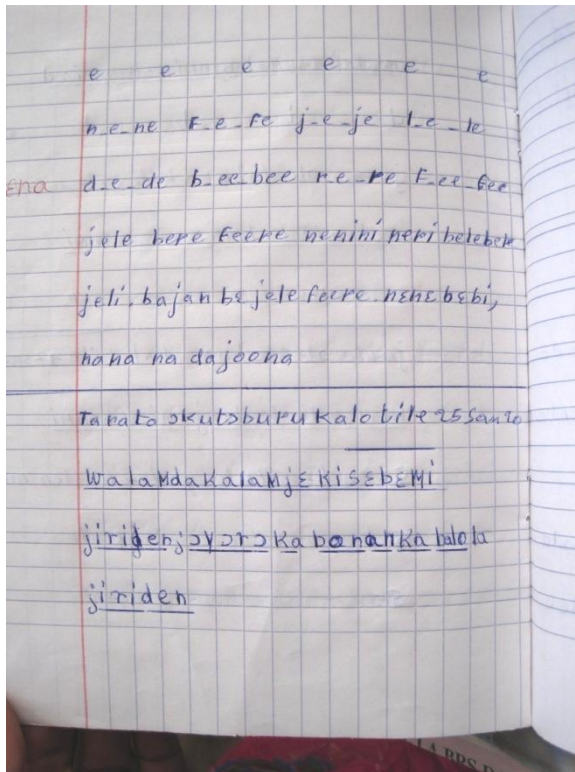 e e e e e e
n_e_ne F_e_Fe j_e_je l_e_le
ena d_e_de b_ee_bee r_e_re F_ee_fee
jele bere feere nenini neri belebele
jeli. bajan bɛ jele feere. nɛnɛ bɛbi,
nana na dajoona
Tarato ɔkutɔburu kalo tile 25 san 20
walaNda kalaNjɛ kisɛbɛMi
jiriden; ɔyɔrɔ ka bonan ka balo la
jiriden